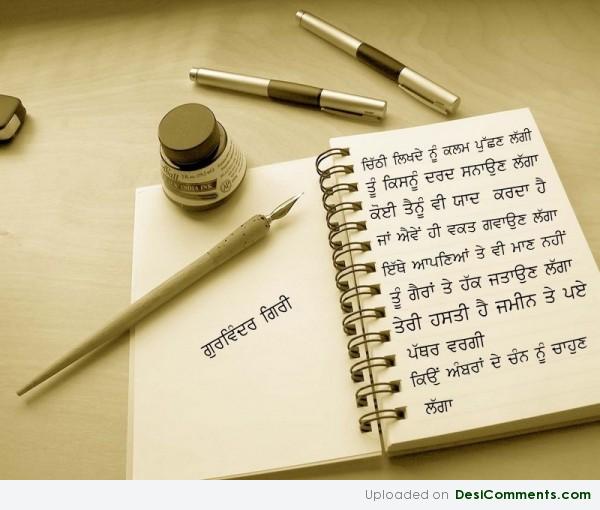 ਚਿੱਠੀ ਲਿਖਦੇ ਨੂੰ ਕਲਮ ਪੁੱਛਣ ਲੱਗੀ
ਤੂੰ ਕਿਸਨੂੰ ਦਰਦ ਸਨਾਉਣ ਲੱਗਾ
ਕੋਈ ਤੈਨੂੰ ਵੀ ਯਾਦ ਕਰਦਾ ਹੈ
ਜਾਂ ਐਵੇਂ ਹੀ ਵਕਤ ਗਵਾਉਣ ਲੱਗਾ
ਇੱਥੇ ਆਪਣਿਆਂ ਤੇ ਵੀ ਮਾਣ ਨਹੀਂ
ਤੂੰ ਗੈਰਾਂ ਤੇ ਹੱਕ ਜਤਾਉਣ ਲੱਗਾ
ਤੇਰੀ ਹਸਤੀ ਹੈ ਜਮੀਨ ਤੇ ਪਏ
ਪੱਥਰ ਵਰਗੀ
ਕਿਉਂ ਅੰਬਰਾਂ ਦੇ ਚੰਨ ਨੂੰ ਚਾਹੁਣ
ਲੱਗਾ
ਗੁਰਵਿੰਦਰ ਗਿਰੀ
INDIA INK
Uploaded on DesiComments.com